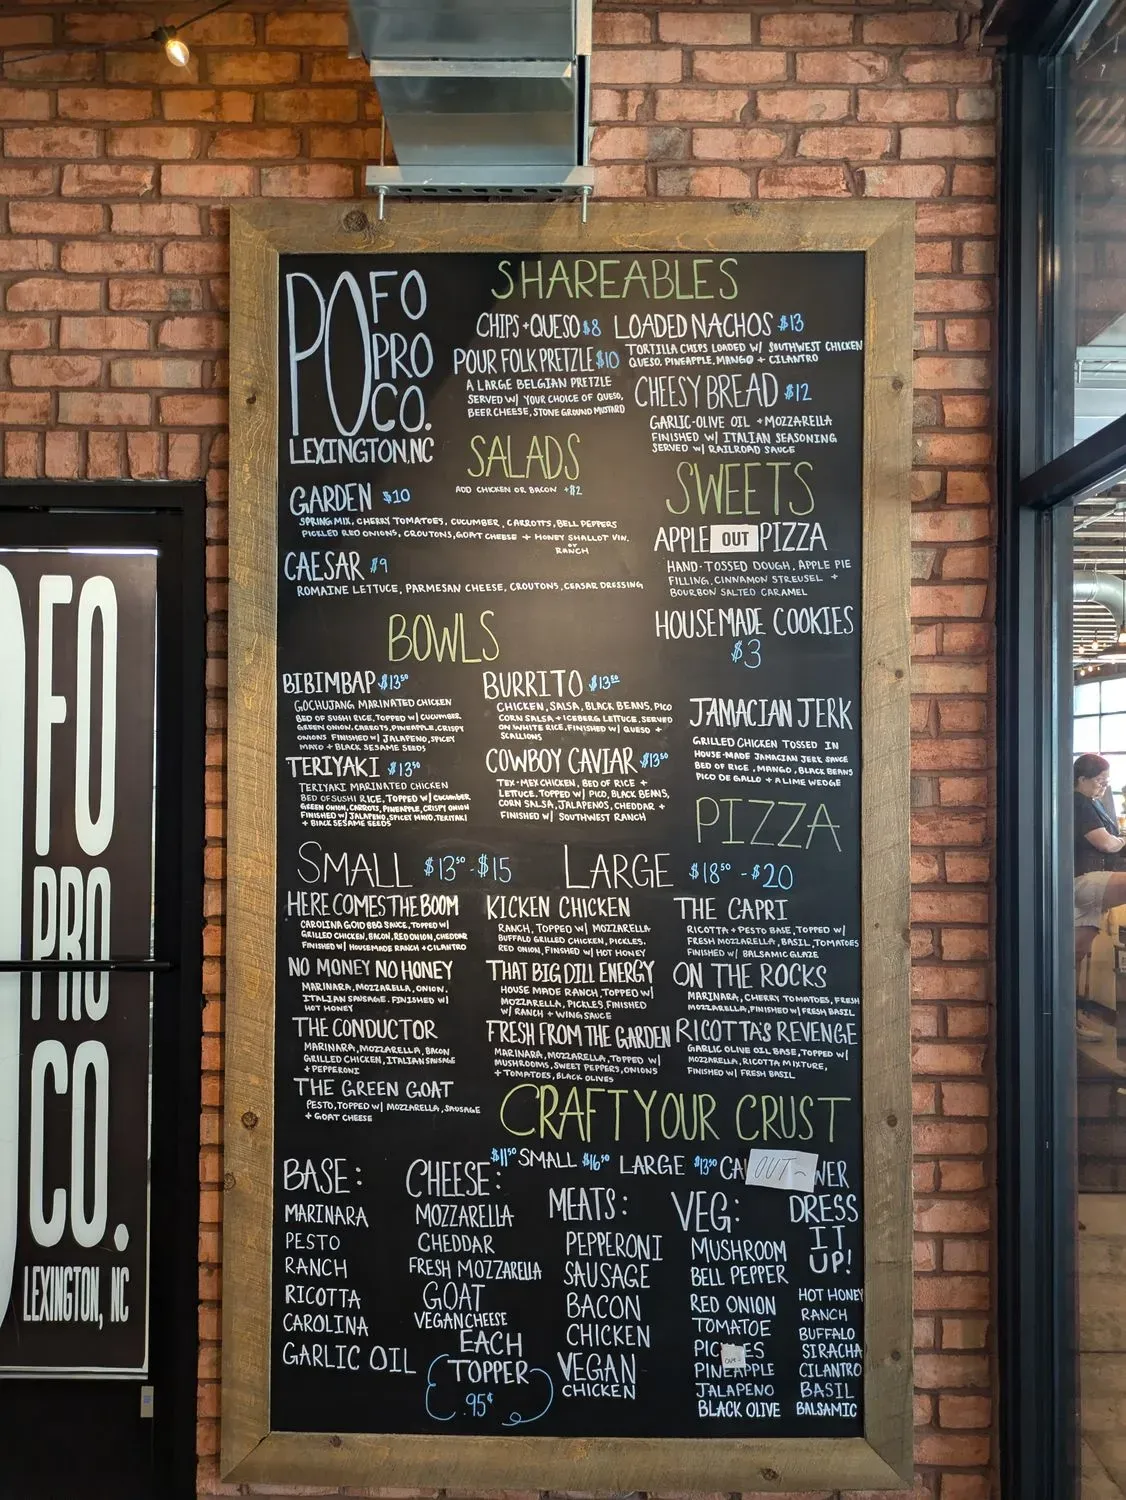 PO FO
PRO
CO.
LEXINGTON, NC
SHAREABLES
CHIPS + QUESO $8
POUR FOLK PRETZLE $10
A LARGE BELGIAN PRETZLE
SERVED W/ YOUR CHOICE OF QUESO,
BEER CHEESE, STONE GROUND MUSTARD
LOADED NACHOS $13
TORTILLA CHIPS LOADED W/ SOUTHWEST CHICKEN
QUESO, PINEAPPLE, MANGO + CILANTRO
CHEESY BREAD $12
GARLIC-OLIVE OIL + MOZZARELLA
FINISHED W/ ITALIAN SEASONING
SERVED W/ RAILROAD SAUCE
SALADS
ADD CHICKEN OR BACON +$2
GARDEN $10
SPRING MIX, CHERRY TOMATOES, CUCUMBER, CARROTTS, BELL PEPPERS
PICKLED RED ONIONS, CROUTONS, GOAT CHEESE + HONEY SHALLOT VIN.
OR
RANCH
CAESAR $9
ROMAINE LETTUCE, PARMESAN CHEESE, CROUTONS, CEASAR DRESSING
SWEETS
APPLE OUT PIZZA
HAND-TOSSED DOUGH, APPLE PIE
FILLING, CINNAMON STREUSEL +
BOURBON SALTED CARAMEL
HOUSEMADE COOKIES
$3
BOWLS
BIBIMBAP $13.50
GOCHUJANG MARINATED CHICKEN
BED OF SUSHI RICE, TOPPED W/ CUCUMBER
GREEN ONION, CARROTS, PINEAPPLE, CRISPY
ONIONS FINISHED W/ JALAPENO, SPICEY
MAYO + BLACK SESAME SEEDS
TERIYAKI $13.50
TERIYAKI MARINATED CHICKEN
BED OF SUSHI RICE, TOPPED W/ CUCUMBER
GREEN ONION, CARROTS, PINEAPPLE, CRISPY ONION
FINISHED W/ JALAPENO, SPICEY MAYO, TERIYAKI
+ BLACK SESAME SEEDS
BURRITO $13.50
CHICKEN, SALSA, BLACK BEANS, PICO
CORN SALSA + ICEBERG LETTUCE, SERVED
ON WHITE RICE, FINISHED W/ QUESO +
SCALLIONS
COWBOY CAVIAR $13.50
TEX-MEX CHICKEN, BED OF RICE +
LETTUCE, TOPPED W/ PICO, BLACK BEANS,
CORN SALSA, JALAPENOS, CHEDDAR +
FINISHED W/ SOUTHWEST RANCH
JAMACIAN JERK
GRILLED CHICKEN TOSSED IN
HOUSE-MADE JAMACIAN JERK SAUCE
BED OF RICE, MANGO, BLACK BEANS
PICO DE GALLO + A LIME WEDGE
PIZZA
SMALL $13.50 - $15
LARGE $18.50 - $20
HERE COMES THE BOOM
CAROLINA GOLD BBQ SAUCE, TOPPED W/
GRILLED CHICKEN, BACON, RED ONION, CHEDDAR
FINISHED W/ HOUSEMADE RANCH + CILANTRO
NO MONEY NO HONEY
MARINARA, MOZZARELLA, ONION,
ITALIAN SAUSAGE. FINISHED W/
HOT HONEY
THE CONDUCTOR
MARINARA, MOZZARELLA, BACON
GRILLED CHICKEN, ITALIAN SAUSAGE
+ PEPPERONI
THE GREEN GOAT
PESTO, TOPPED W/ MOZZARELLA, SAUSAGE
+ GOAT CHEESE
KICKEN CHICKEN
RANCH, TOPPED W/ MOZZARELLA
BUFFALO GRILLED CHICKEN, PICKLES,
RED ONION, FINISHED W/ HOT HONEY
THAT BIG DILL ENERGY
HOUSE MADE RANCH, TOPPED W/
MOZZARELLA, PICKLES, FINISHED
W/ RANCH + WING SAUCE
FRESH FROM THE GARDEN
MARINARA, MOZZARELLA, TOPPED W/
MUSHROOMS, SWEET PEPPERS, ONIONS
+ TOMATOES, BLACK OLIVES
THE CAPRI
RICOTTA + PESTO BASE, TOPPED W/
FRESH MOZZARELLA, BASIL, TOMATOES
FINISHED W/ BALSAMIC GLAZE
ON THE ROCKS
MARINARA, CHERRY TOMATOES, FRESH
MOZZARELLA, FINISHED W/ FRESH BASIL
RICOTTA'S REVENGE
GARLIC OLIVE OIL BASE, TOPPED W/
MOZZARELLA, RICOTTA MIXTURE,
FINISHED W/ FRESH BASIL
CRAFT YOUR CRUST
$11.50 SMALL $16.50 LARGE $13.50 CA OUT WER
BASE:
MARINARA
PESTO
RANCH
RICOTTA
CAROLINA
GARLIC OIL
CHEESE:
MOZZARELLA
CHEDDAR
FRESH MOZZARELLA
GOAT
VEGAN CHEESE
EACH
TOPPER
.95¢
MEATS:
PEPPERONI
SAUSAGE
BACON
CHICKEN
VEGAN
CHICKEN
VEG:
MUSHROOM
BELL PEPPER
RED ONION
TOMATOE
PIC OUT ES
PINEAPPLE
JALAPENO
BLACK OLIVE
DRESS
IT
UP!
HOT HONEY
RANCH
BUFFALO
SIRACHA
CILANTRO
BASIL
BALSAMIC
FO
PRO
CO.
LEXINGTON, NC